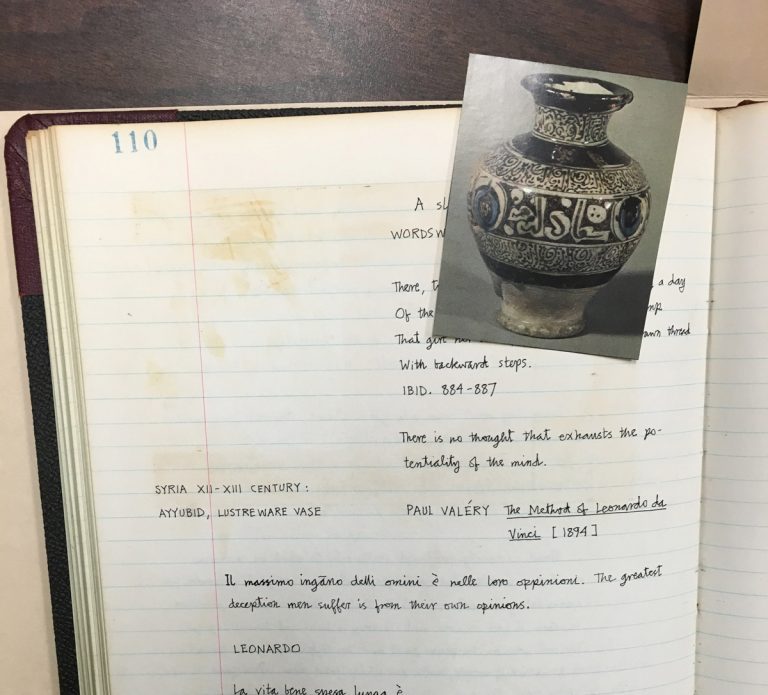 110
A
WORDSW
There, a day
Of the
That girt drawn thread
With backward steps.
IBID. 884-887
There is no thought that exhausts the po-
tentiality of the mind.
SYRIA XII-XIII CENTURY:
AYYUBID, LUSTREWARE VASE
PAUL VALÉRY The Method of Leonardo da
Vinci [1894]
Il massimo ingāno delli omini è nelle loro oppinioni. The greatest
deception men suffer is from their own opinions.
LEONARDO
La vita bene spesa lunga è